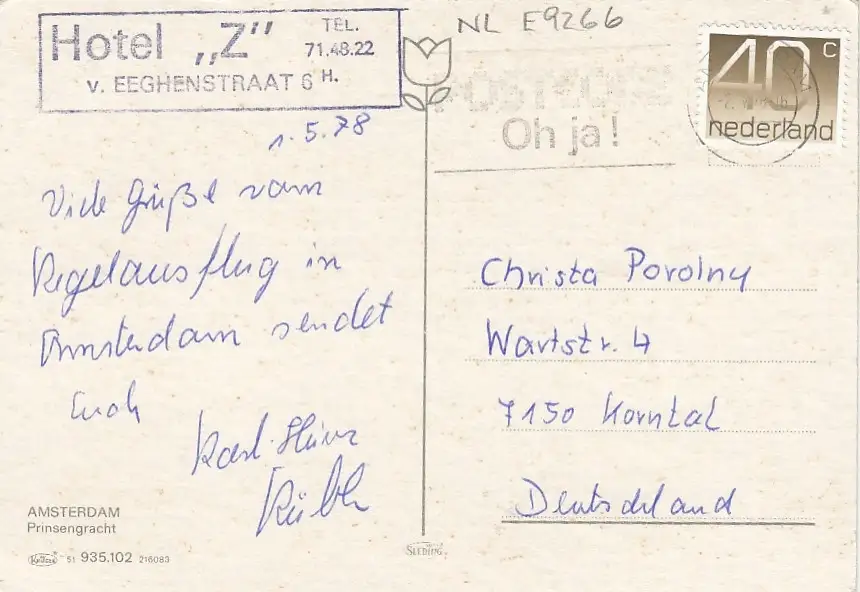 Hotel „Z”
TEL.
71.48.22
v. EEGHENSTRAAT 6 H.
NL E9266
POSTCODE
Oh ja!
40 c
nederland
1.5.78
Viele Grüße vom
Kegelausflug in
Amsterdam sendet
Euch
Karl-Heinz
Christa Porolny
Wartstr. 4
7150 Korntal
Deutschland
AMSTERDAM
Prinsengracht
51 935.102 216083